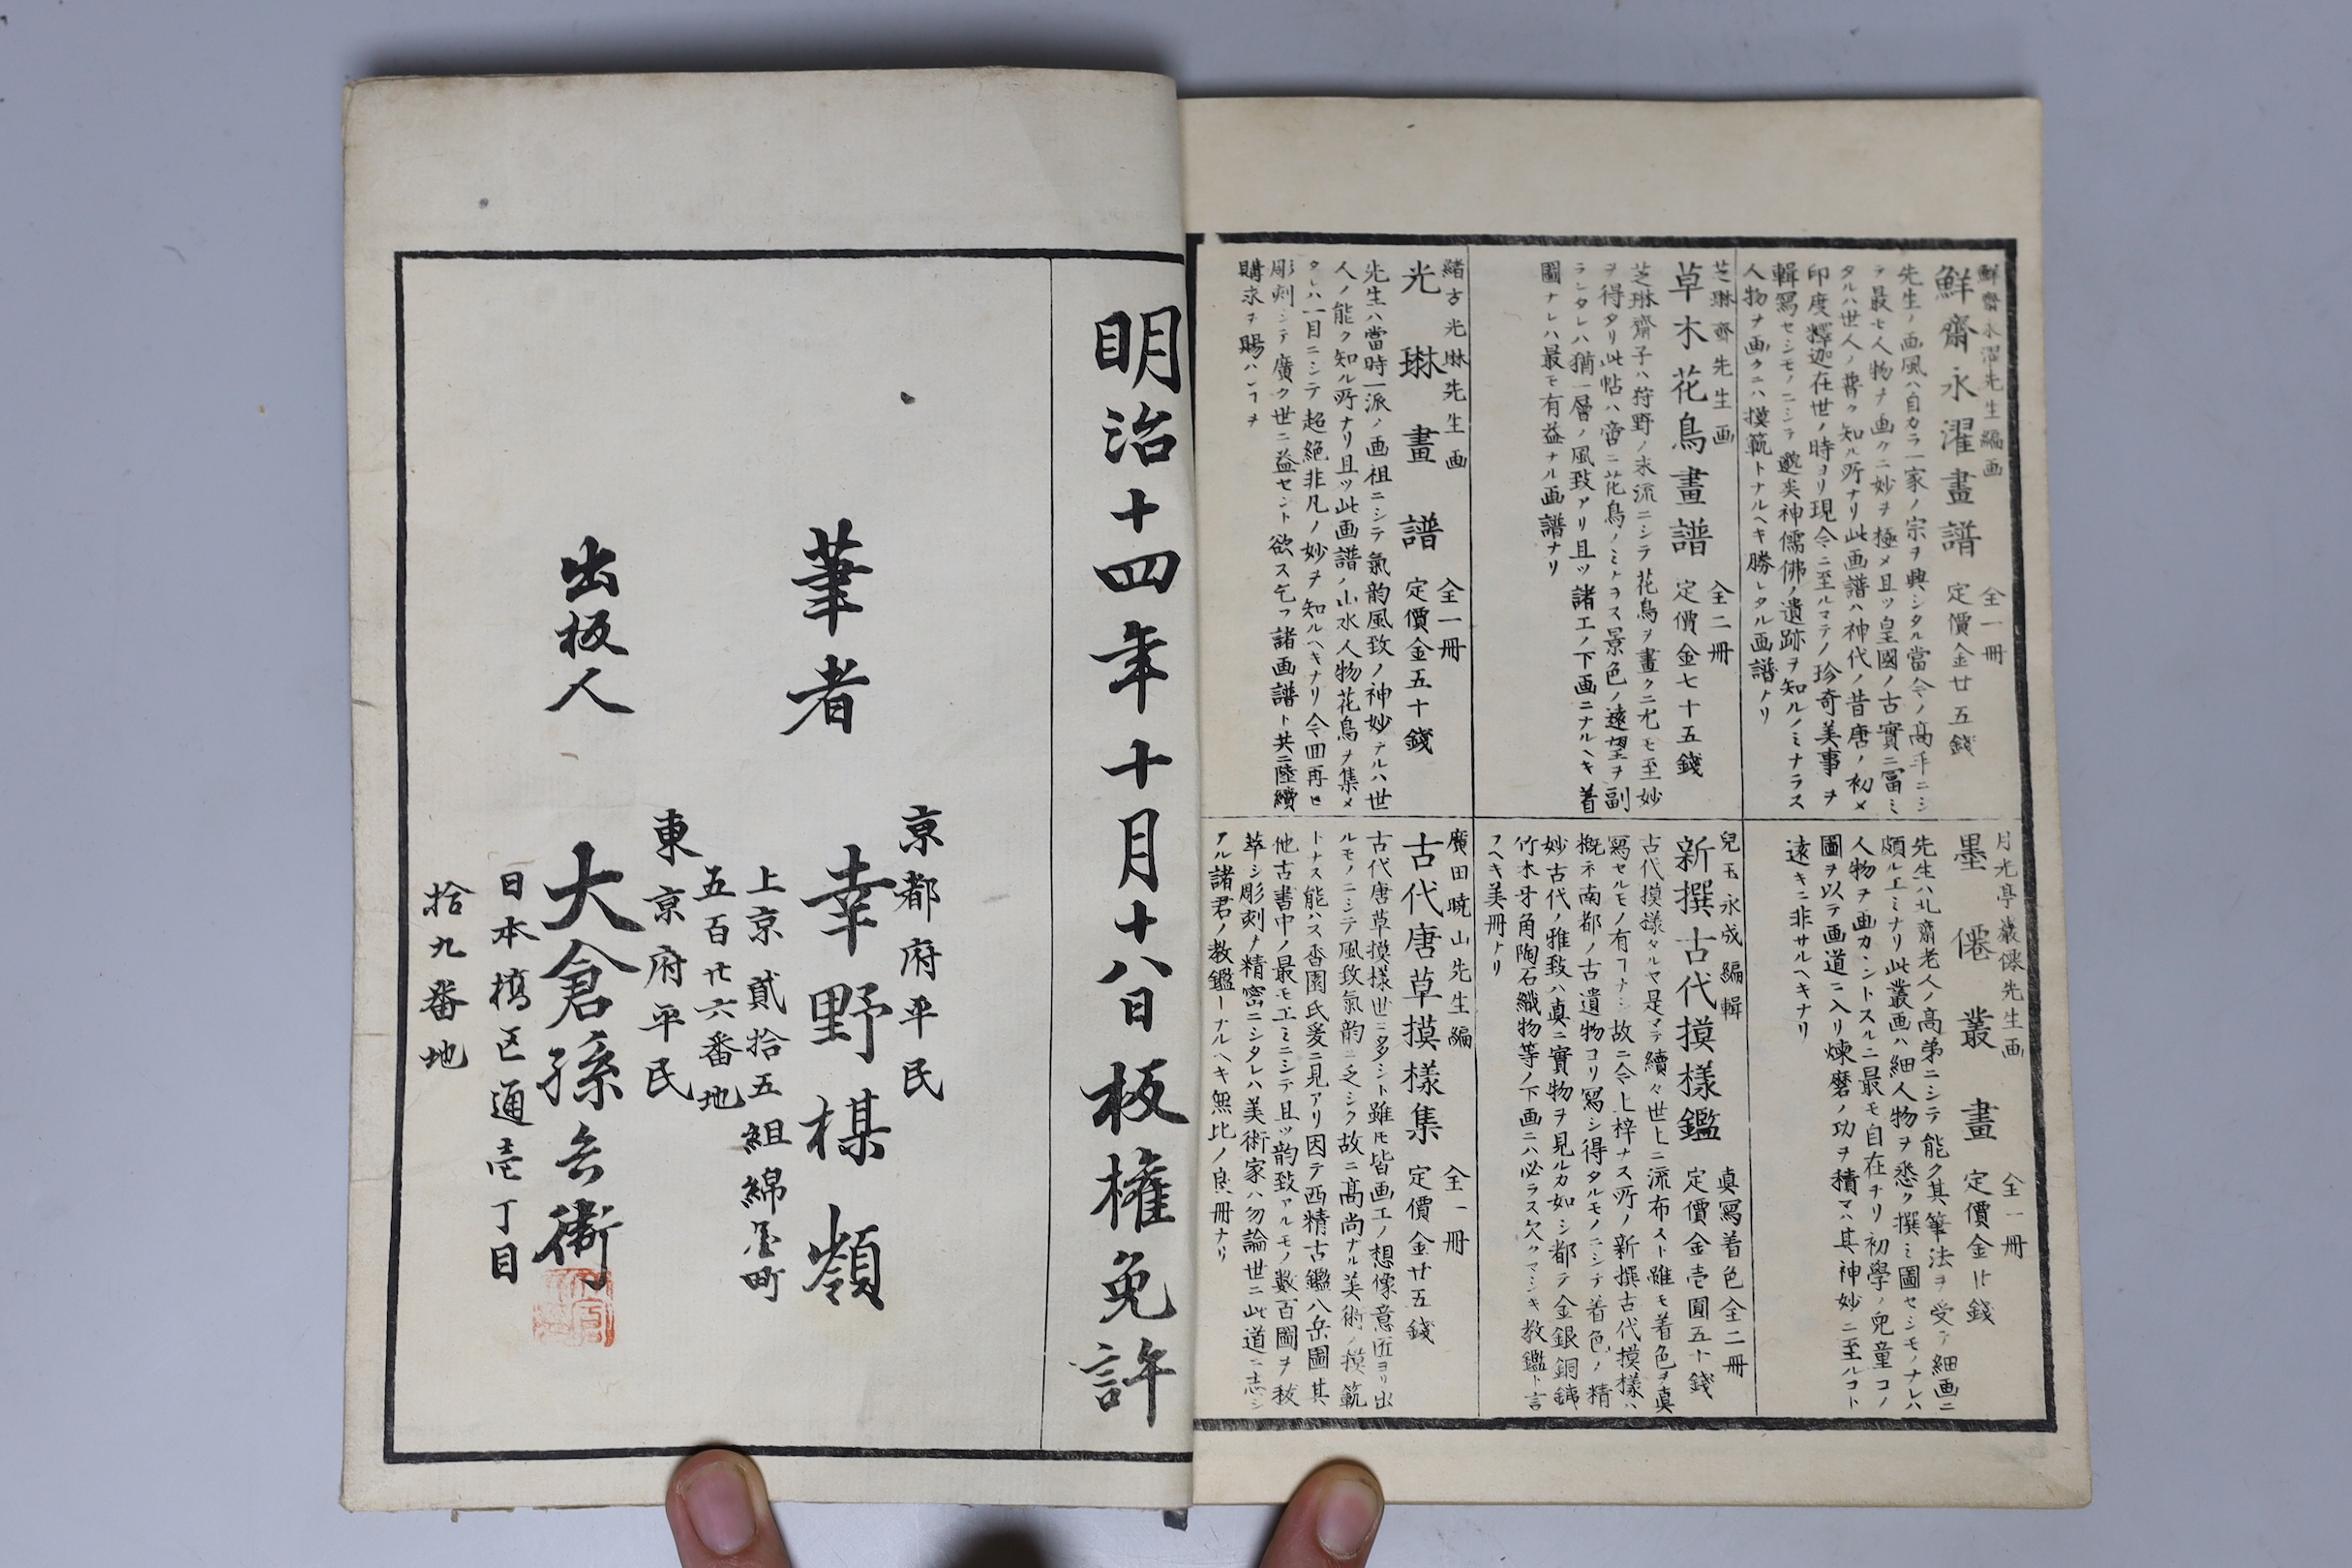 鮮齋永濯先生編画
鮮齋永濯畫譜 全一冊 定價金廿五錢
先生ノ画風ハ自カラ一家ノ宗ヲ興シタル當今ノ高手ニシ
テ最モ人物ヲ画クニ妙ヲ極メ且ツ皇國ノ古實ニ富ミ
タルハ世人ノ普ク知ル所ナリ此画譜ハ神代ノ昔唐ノ初メ
印度釋迦在世ノ時ヨリ現今ニ至ルマテノ珍奇美事ヲ
輯寫セシモノニシテ邈矣神儒佛ノ遺跡ヲ知ルノミナラス
人物ヲ画クニハ摸範トナルヘキ勝レタル画譜ナリ
芝琳齊先生画
草木花鳥畫譜 全二冊 定價金七十五錢
芝琳齊子ハ狩野ノ末流ニシテ花鳥ヲ畫クニ尤モ至妙
ヲ得タリ此帖ハ啻ニ花鳥ノミナラス景色ノ遠望ヲ副
ラシタレハ猶一層ノ風致アリ且ツ諸工ノ下画ニナルヘキ着
圖ナレハ最モ有益ナル画譜ナリ
緒方光琳先生画
光琳畫譜 全一冊 定價金五十錢
先生ハ當時一派ノ画祖ニシテ氣韵風致ノ神妙ナルハ世
人ノ能ク知ル所ナリ且ツ此画譜ノ山水人物花鳥ヲ集メ
タレハ一目ニシテ超絶非凡ノ妙ヲ知ルヘキナリ今回再ヒ
彫刻シテ廣ク世ニ益セント欲ス乞フ諸画譜ト共ニ陸續
購求ヲ賜ハンヿヲ
月光亭巌僊先生画
墨僊叢畫 全一冊 定價金廿錢
先生ハ北齋老人ノ高弟ニシテ能ク其筆法ヲ受テ細画ニ
頗ル工ミナリ此叢画ハ細人物ヲ悉ク撰ミ圖セシモノナレハ
人物ヲ画カントスルニ最モ自在ナリ初學ノ兒童コノ
圖ヲ以テ画道ニ入リ煉磨ノ功ヲ積マハ其神妙ニ至ルコト
遠キニ非サルヘキナリ
兒玉永成編輯
新撰古代摸樣鑑 眞寫着色全二冊 定價金壱圓五十錢
古代摸樣タルヤ是マテ續々世上ニ流布スト雖モ着色ヲ眞
寫セルモノ有ヿナシ故ニ今上梓ナス所ノ新撰古代摸樣ハ
概子南都ノ古遺物ヨリ寫シ得タルモノニシテ着色ノ精
妙古代ノ雅致ハ眞ニ實物ヲ見ルカ如シ都テ金銀銅鉄
竹木牙角陶石織物等ノ下画ニハ必ラス欠クマシキ教鑑ト言
フヘキ美冊ナリ
廣田暁山先生編
古代唐草摸樣集 全一冊 定價金廿五錢
古代唐草摸樣世ニ多シト雖モ皆画工ノ想像意匠ヨリ出
ルモノニシテ風致氣韵ニ乏シク故ニ高尚ナル美術ノ摸範
トナス能ハス香園氏爰ニ見アリ因テ西精古鑑八岳圖其
他古書中ノ最モ工ミニシテ且ツ韵致アルモノ数百圖ヲ抜
萃シ彫刻ヲ精密ニシタレハ美術家ハ勿論世ニ此道ニ志シ
アル諸君ノ教鑑トナルヘキ無比ノ良冊ナリ
明治十四年十月十八日板權免許
京都府平民
筆者 幸野楳嶺
上京貳拾五組綿屋町
五百廿六番地
東京府平民
出板人 大倉孫兵衛
日本橋区通壱丁目
拾九番地